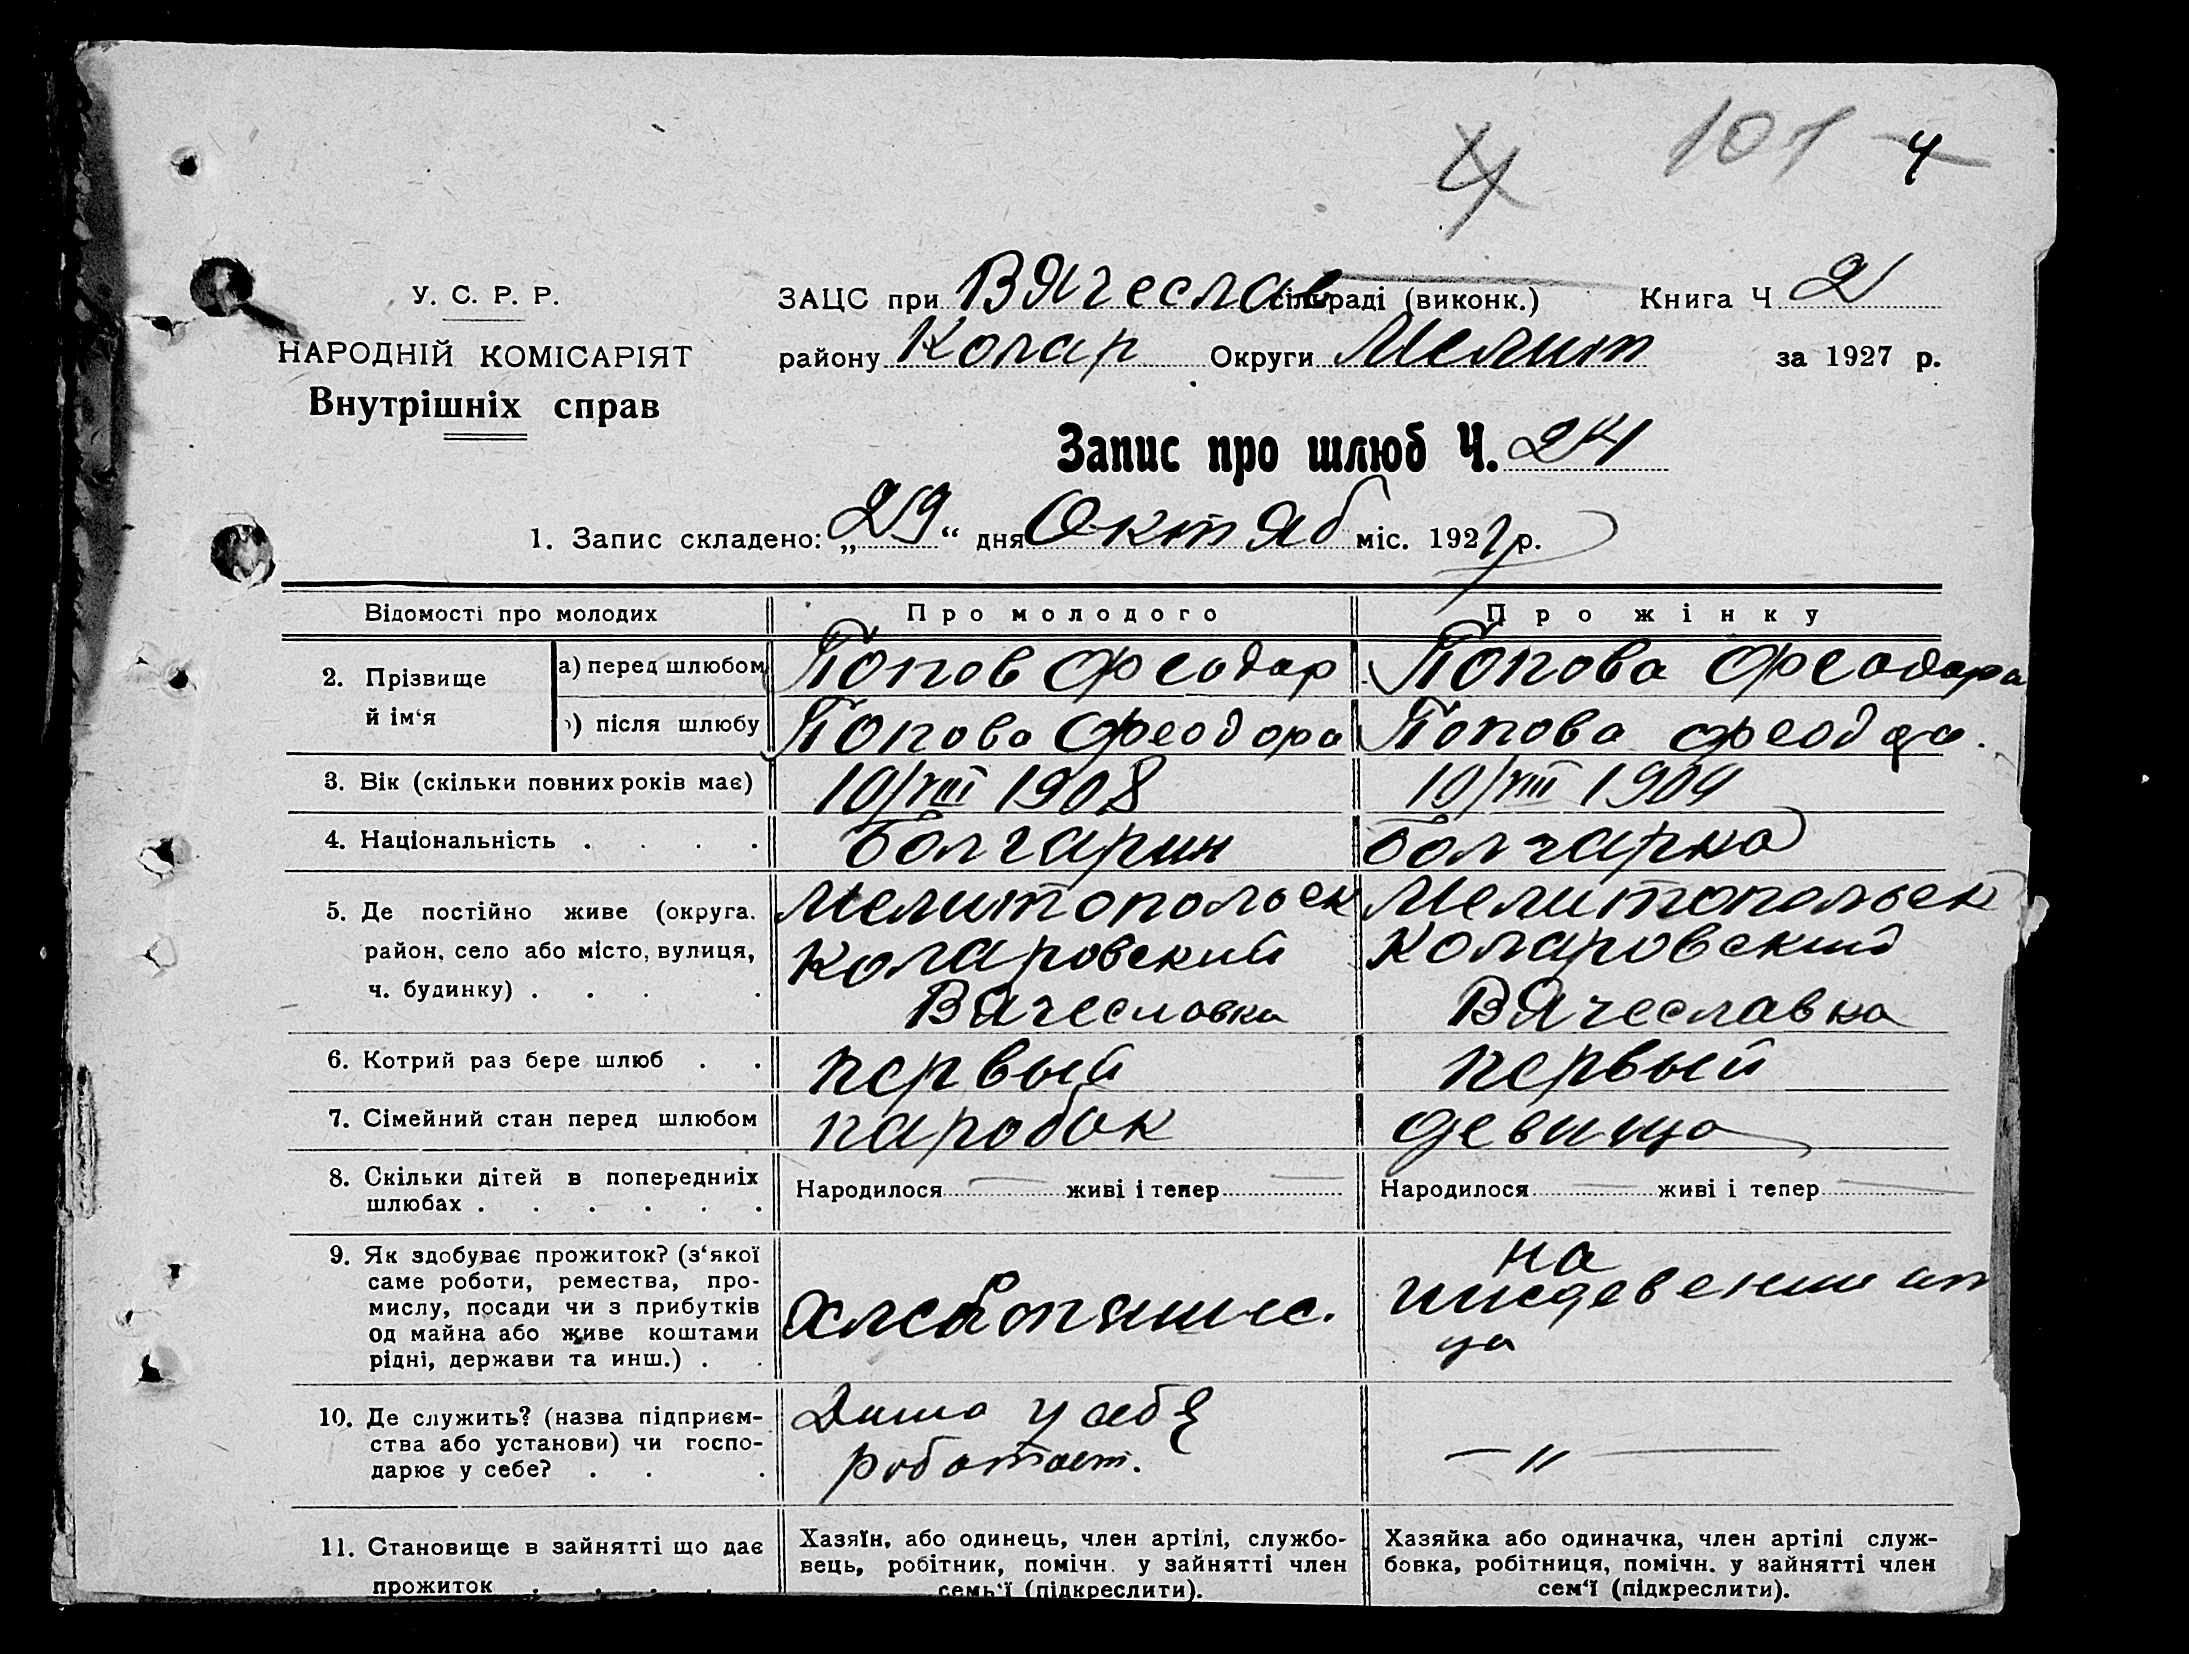 101 4
4
У. С. Р. Р.
НАРОДНІЙ КОМІСАРІЯТ
Внутрішніх справ
ЗАЦС при Вячеслав сільраді (виконк.) Книга Ч 2
району Колар Округи Мелит за 1927 р.
Запис про шлюб Ч. 24
1. Запис складено: „29“ дня Октяб міс. 1927 р.
Відомості про молодих Про молодого Про жінку
2. Прізвище й ім‘я а) перед шлюбом Попов Феодор Попова Феодора
б) після шлюбу Попова Феодора Попова Феодора.
3. Вік (скільки повних років має) 10/VIII 1908 10/VIII 1909
4. Національність . . . . Болгарин Болгарка
5. Де постійно живе (округа. Мелитопольск Мелитопольск
район, село або місто, вулиця, Коларовский Коларовский
ч. будинку) . . . . Вячеславка Вячеславка
6. Котрий раз бере шлюб . . первый первый
7. Сімейний стан перед шлюбом паробок девица
8. Скільки дітей в попередниіх
шлюбах . . . . . . Народилося — живі і тепер — Народилося — живі і тепер —
9. Як здобуває прожиток? (з‘якої
саме роботи, ремества, про-
мислу, посади чи з прибутків
од майна або живе коштами
рідні, держави та инш.) . .
на
10. Де служить? (назва підприєм-
ства або установи) чи госпо-
дарює у себе? . . .
у себя
работает.
— „ —
11. Становище в зайнятті що дає
прожиток . . . .
Хазяїн, або одинець, член артілі, службо-
вець, робітник, помічн. у зайнятті член
семь‘ї (підкреслити).
Хазяйка або одиначка, член артілі служ-
бовка, робітниця, помічн. у зайнятті член
сем‘ї (підкреслити).